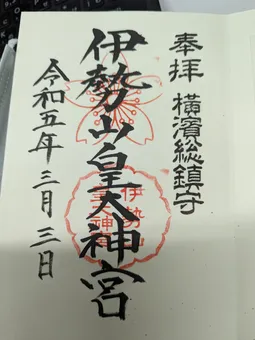 奉拝
横濱総鎮守
伊勢山皇大神宮
令和五年三月三日
伊勢山
皇大神宮